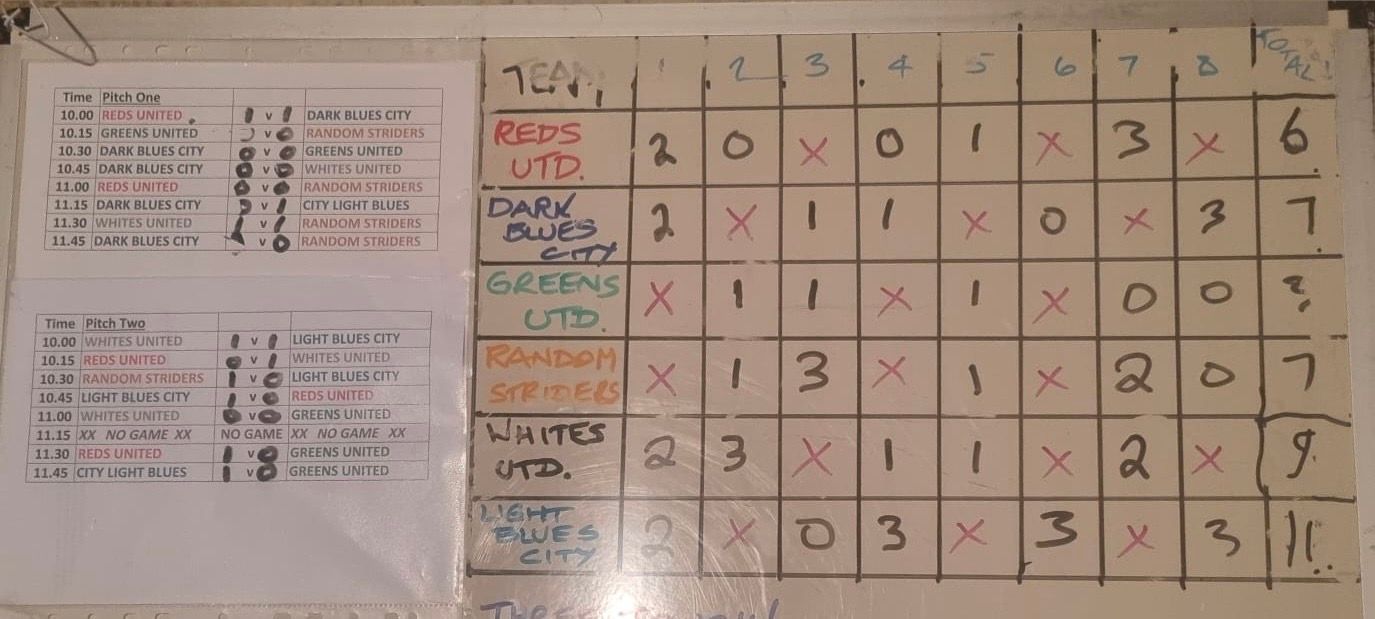 Time Pitch One
10.00 REDS UNITED v DARK BLUES CITY
10.15 GREENS UNITED v RANDOM STRIDERS
10.30 DARK BLUES CITY v GREENS UNITED
10.45 DARK BLUES CITY v WHITES UNITED
11.00 REDS UNITED v RANDOM STRIDERS
11.15 DARK BLUES CITY v CITY LIGHT BLUES
11.30 WHITES UNITED v RANDOM STRIDERS
11.45 DARK BLUES CITY v RANDOM STRIDERS
Time Pitch Two
10.00 WHITES UNITED v LIGHT BLUES CITY
10.15 REDS UNITED v WHITES UNITED
10.30 RANDOM STRIDERS v LIGHT BLUES CITY
10.45 LIGHT BLUES CITY v REDS UNITED
11.00 WHITES UNITED v GREENS UNITED
11.15 XX NO GAME XX NO GAME XX NO GAME XX
11.30 REDS UNITED v GREENS UNITED
11.45 CITY LIGHT BLUES v GREENS UNITED
TEAM 1 2 3 4 5 6 7 8 TOTAL
REDS UTD. 2 0 X 0 1 X 3 X 6
DARK BLUES CITY 2 X 1 1 X 0 X 3 7
GREENS UTD. X 1 1 X 1 X 0 0
RANDOM STRIDERS X 1 3 X 1 X 2 0 7
WHITES UTD. 2 3 X 1 1 X 2 X 9
LIGHT BLUES CITY 2 X 0 3 X 3 X 3 11